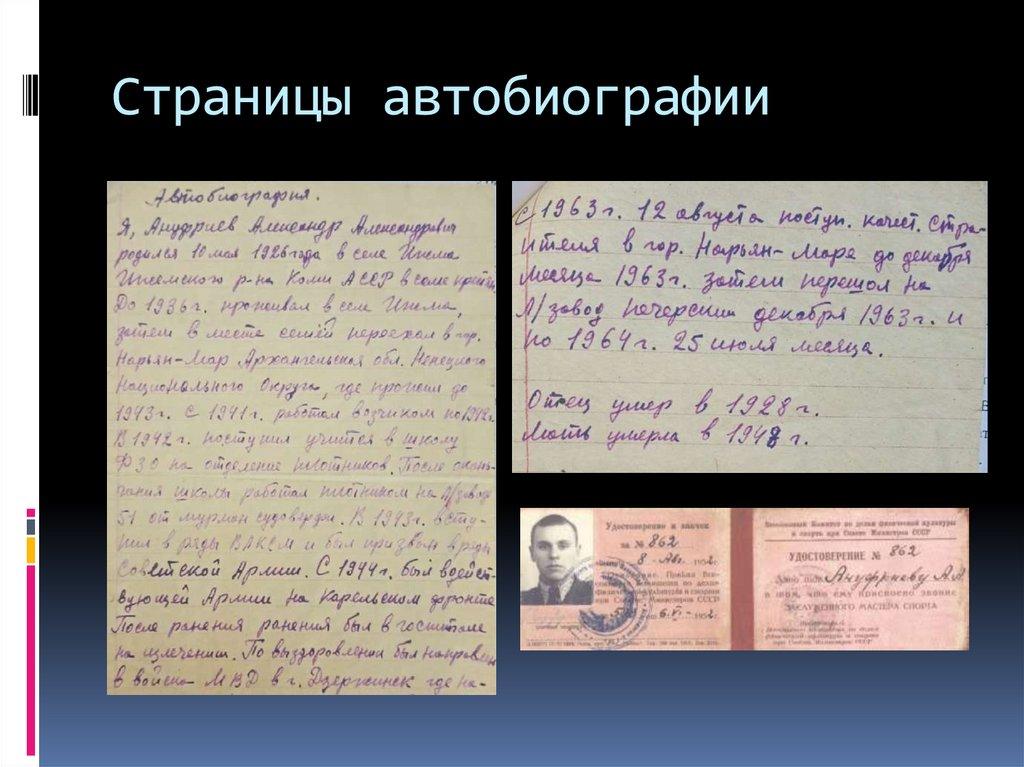 Страницы автобиографии
Автобиография.
Я, Ануфриев Александр Александрович
родился 10 мая 1926 года в селе Ижма
Ижемского р-на Коми АССР в семье
До 1936 г. проживал в селе Ижма,
затем в месте семьёй переехал в гор.
Нарьян-Мар Архангельская обл. Ненецкого
Национального Округа, где прожил до
1943 г. С 1941 г. работал возчиком по 1942г.
В 1942 г. поступил учится в школу
ФЗО на отделение плотников. После окон-
чания школы работал плотником на Л/завод
51 от мурман судоверфи. В 1943 г. всту-
пил в ряды ВЛКСМ и был призван в ряды
Советской Армии. С 1944 г. был в дейст-
вующей Армии на Карельском фронте
После ранения ранения был в госпитале
на излечении. По выздоровлении был направлен
в войска МВД в г. Дзержинск где на-
с 1963 г. 12 августа поступ. качест. стро-
ителя в гор. Нарьян-Маре до декабря
месяца 1963 г. затем перешол на
Л/завод печерский декабря 1963 г. и
по 1964 г. 25 июля месяца.
Отец умер в 1928 г.
Мать умерла в 1948 г.
Удостоверение и значок
за № 862
8 - Авг. 1952 г.
Всесоюзный Комитет по делам физической культуры
и спорта при Совете Министров СССР
УДОСТОВЕРЕНИЕ № 862
Ануфриеву А.А.
в том, что ему присвоено звание
ЗАСЛУЖЕННОГО МАСТЕРА СПОРТА